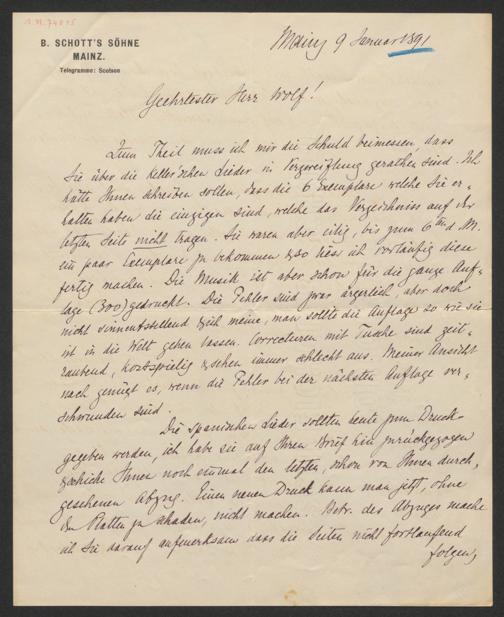 I.N. 74815
B. SCHOTT'S SÖHNE
MAINZ.
Telegramme: Scotson
Mainz 9 Januar 1891
Geehrtester Herr Wolf!
Zum Theil muss ich mir die Schuld beimessen, dass
Sie über die Keller'schen Lieder in Verzweiflung gerathen sind. Ich
hätte Ihnen schreiben sollen, dass die 6 Exemplare welche Sie er-
halten haben die einzigen sind, welche das Verzeichniss auf der
letzten Seite nicht tragen. Sie waren aber eilig, bis zum 6ten d. M.
ein paar Exemplare zu bekommen & so liess ich vorläufig diese
fertig machen. Die Musik ist aber schon für die ganze Auf-
lage (300) gedruckt. Die Fehler sind zwar ärgerlich, aber doch
nicht sinnentstellend & ich meine, man sollte die Auflage so wie sie
ist in die Welt gehen lassen. Correcturen mit Tusche sind zeit-
raubend, kostspielig & sehen immer schlecht aus. Meiner Ansicht
nach genügt es, wenn die Fehler bei der nächsten Auflage ver-
schwunden sind.
Die spanischen Lieder sollten heute zum Druck
gegeben werden, ich habe sie auf Ihren Brief hin zurückgezogen
& schicke Ihnen noch einmal den letzten, schon von Ihnen durch-
gesehenen Abzug. Einen neuen Druck kann man jetzt, ohne
den Platten zu schaden, nicht machen. Betr. des Abzuges mache
ich Sie darauf aufmerksam dass die Seiten nicht fortlaufend
folgen,